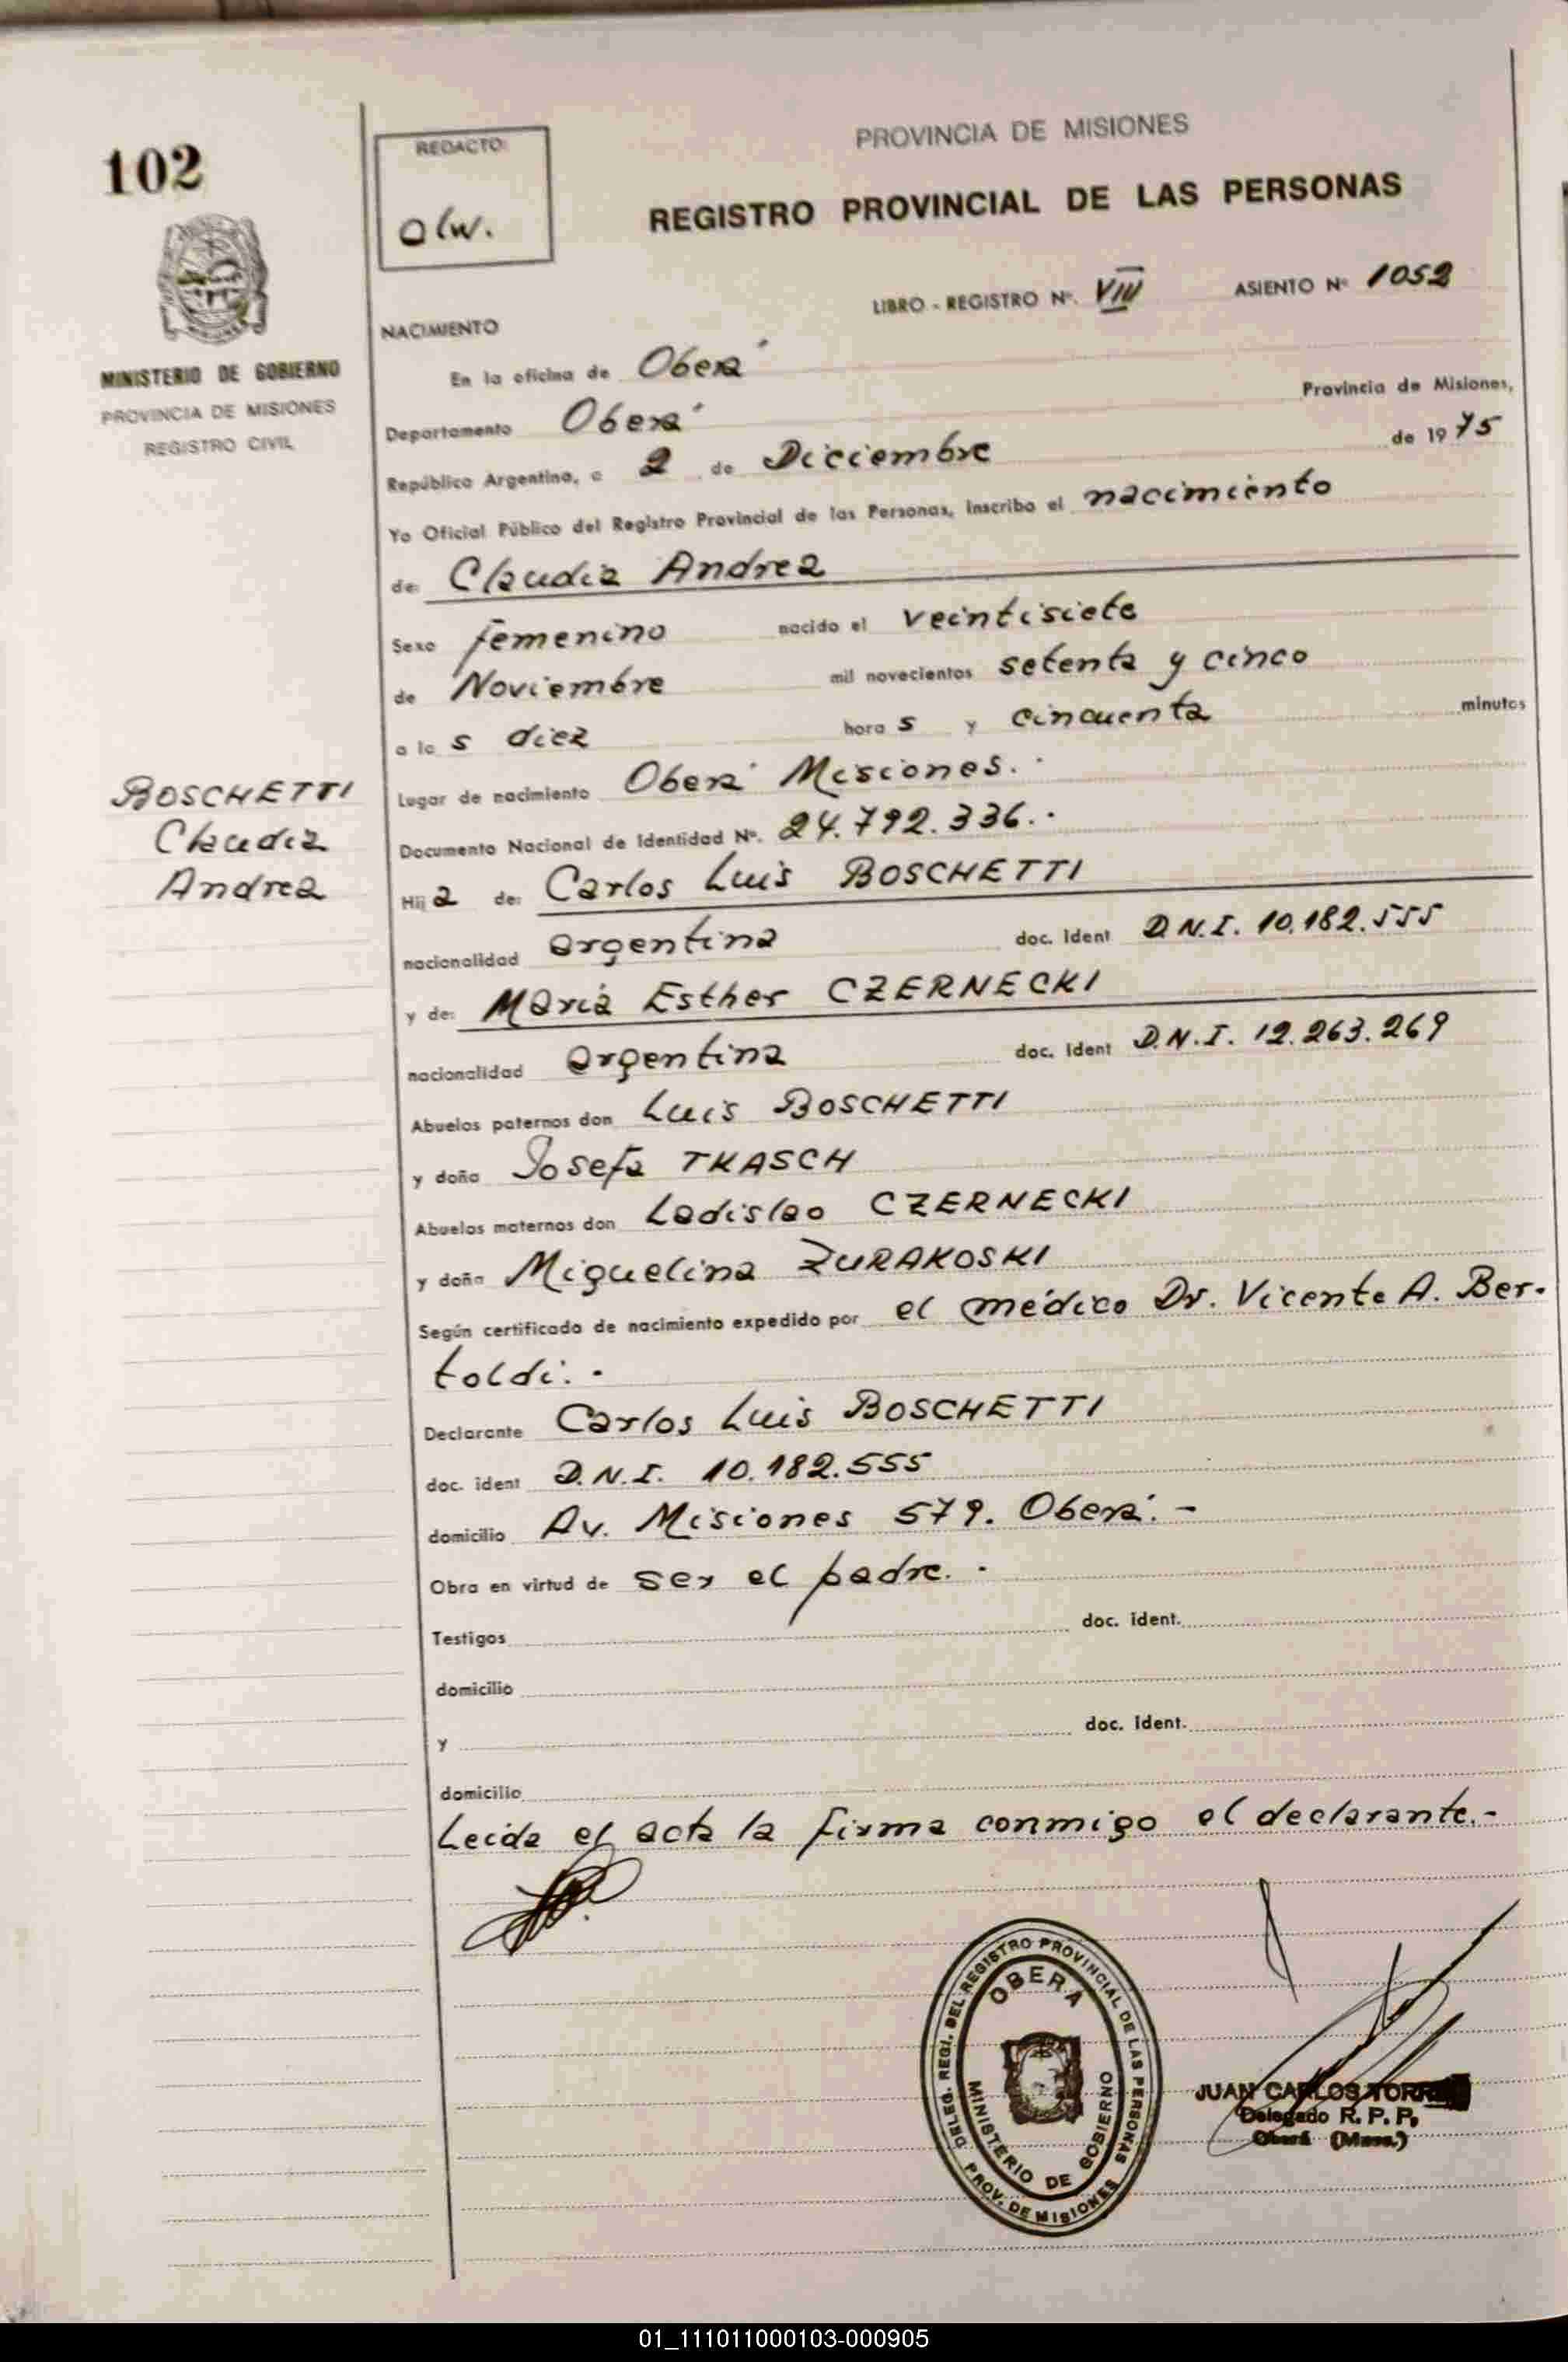 102
REDACTO:
olw.
PROVINCIA DE MISIONES
REGISTRO PROVINCIAL DE LAS PERSONAS
LIBRO - REGISTRO Nº. VIII ASIENTO Nº 1052
MINISTERIO DE GOBIERNO
PROVINCIA DE MISIONES
REGISTRO CIVIL
NACIMIENTO
En la oficina de Oberá
Provincia de Misiones,
Departamento Oberá
República Argentina, a 2 de Diciembre de 1975
Yo Oficial Público del Registro Provincial de las Personas, inscribo el nacimiento
de: Claudia Andrea
Sexo femenino nacido el veintisiete
de Noviembre mil novecientos setenta y cinco
a las diez horas y cincuenta minutos
Lugar de nacimiento Oberá Misiones.
Documento Nacional de Identidad Nº. 24.792.336.
BOSCHETTI
Claudia
Andrea
Hija de: Carlos Luis BOSCHETTI
nacionalidad argentina doc. ident D.N.I. 10.182.555
y de: María Esther CZERNECKI
nacionalidad argentina doc. ident D.N.I. 12.263.269
Abuelos paternos don Luis BOSCHETTI
y doña Josefa TKASCH
Abuelos maternos don Ladislao CZERNECKI
y doña Miguelina ZURAKOSKI
Según certificado de nacimiento expedido por el médico Dr. Vicente A. Ber-
toldi.-
Declarante Carlos Luis BOSCHETTI
doc. ident D.N.I. 10.182.555
domicilio Av. Misiones 579. Oberá.-
Obra en virtud de ser el padre.-
Testigos doc. ident.
domicilio
y doc. ident.
domicilio
Leída el acta la firma conmigo el declarante.-
DELEG. REGI. DEL REGISTRO PROVINCIAL DE LAS PERSONAS
OBERA
MINISTERIO DE GOBIERNO
PROV. DE MISIONES
JUAN CARLOS
Delegado R. P. P.
Oberá (Mnes.)
01_111011000103-000905